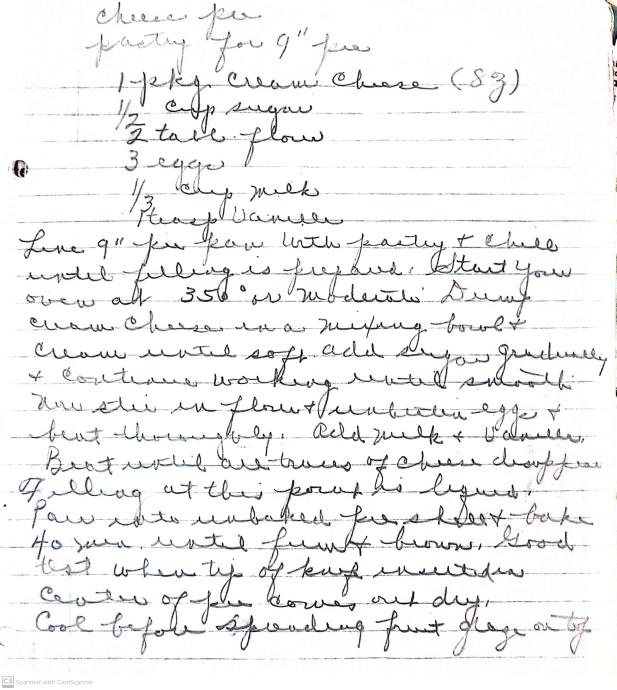 cheese pie
pastry for 9" pie
1 pkg. Cream Cheese (8 oz)
1/2 cup sugar
2 tabl flour
3 eggs
1/3 cup milk
1 teasp Vanilla
Line 9" pie pan with pastry & chill
until filling is prepared. Start your
oven at 350° or moderate Dump
cream cheese in a mixing bowl &
cream until soft add sugar gradually
& continue working until smooth
Now stir in flour & unbeaten eggs &
beat thoroughly. Add milk & Vanilla.
Beat until all traces of cheese disappear
Filling at this point is liquid.
Pour into unbaked pie shell & bake
40 min. until firm & brown. Good
test when tip of knife inserted in
Center of pie comes out dry.
Cool before spreading fruit glaze on top
CS Scanned with CamScanner